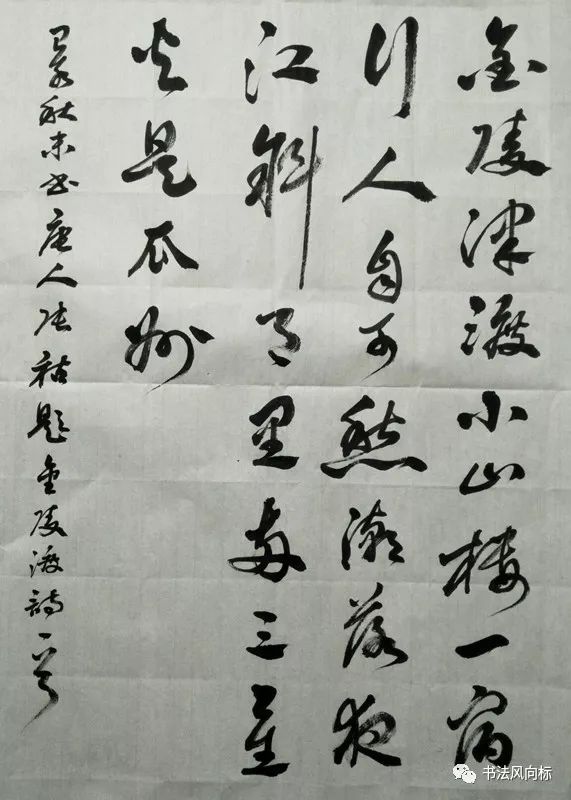 金陵津渡小山楼一宿
行人自可愁潮落夜
江斜月里两三星
火是瓜州
己亥秋末书唐人张祜题金陵渡詩一首
书法风向标